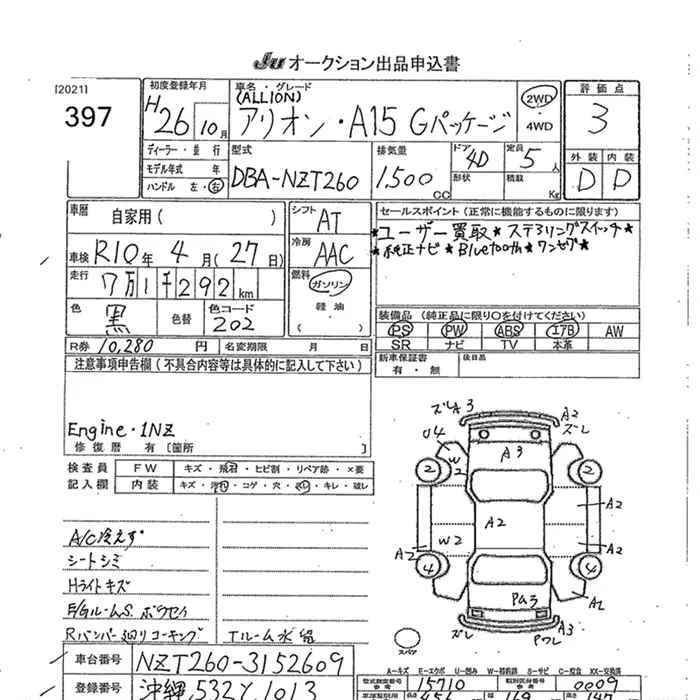 JU オークション出品申込書
[2021]
397
初度登録年月
H26年10月
車名・グレード
(ALLION)
アリオン・A15 Gパッケージ
2WD
・
4WD
評価点
3
ディーラー・並行
モデル年式 年
ハンドル 左・右
型式
DBA-NZT260
排気量
1,500 CC
ドア
4D
形状
定員
5人
積載
Kg
外装 内装
D D
車歴
自家用( )
シフト
AT
セールスポイント(正常に機能するものに限ります)
★ユーザー買取★ステアリングスイッチ★
★純正ナビ★Bluetooth★ワンセグ★
車検 R10年 4月(27日)
冷房
AAC
走行
7万1千292km
燃料
ガソリン
軽油
( )
色
黒
色替
色コード
202
装備品(純正品に限り○を付けてください)
PS PW ABS エアB AW
SR ナビ TV 本革
R券 10,280円 名変期限 月 日
新車保証書
有・無
後日品
注意事項申告欄(不具合内容等は具体的に記入して下さい)
Engine・1NZ
修復歴 有〔箇所 〕
検査員
記入欄
FW キズ・飛石・ヒビ割・リペア跡・×要
内装 キズ・汚れ・コゲ・穴・スレ・キレ・破レ
A/C冷えず
シートシミ
Hライトキズ
E/Gルーム S. ボウセイ
Rバンパー廻りコーキング
Tルーム水溜
ズレ A3
A2
ズレ
U4
W2
A3
2
2
A2
A2
W2
A2
A2
4
4
Pｺ3
A2
ズレ
A3
Pワレ
スペア
A-キズ E-エクボ U-凹み W-補修跡 S-サビ C-腐食 XX-交換済
車台番号 NZT260-3152609
型式指定番号 15710
類別区分番号 0009
登録番号 沖縄 532 Y 1013